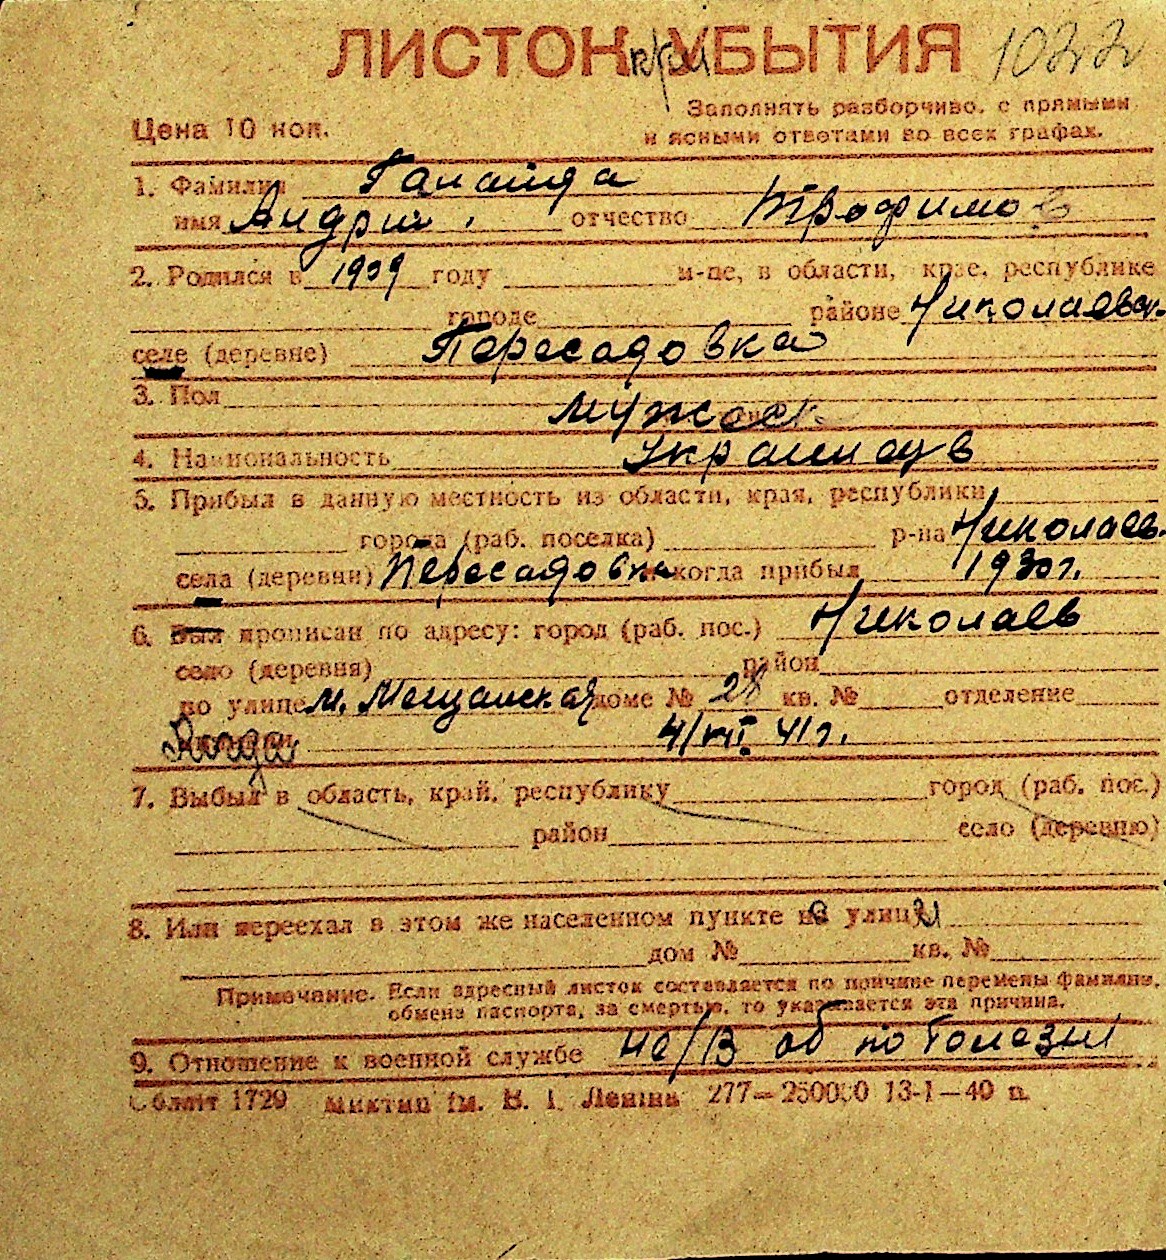 ЛИСТОК УБЫТИЯ 1022
при
Цена 10 коп.
Заполнять разборчиво, с прямыми
и ясными ответами во всех графах.
1. Фамилия Галайда
имя Андрій отчество Трофимов
2. Родился в 1909 году м-це, в области, крае, республике
городе районе Николаевск.
селе (деревне) Пересадовка
3. Пол мужеск
4. Национальность
5. Прибыл в данную местность из области, края, республики
города (раб. поселка) р-на Николаев.
села (деревни) Пересадовка и когда прибыл 1930 г.
6. Был прописан по адресу: город (раб. пос.) Николаев
село (деревня) район
по улице М. Мещанская доме № 28 кв. № отделение
4/VIII 41 г.
7. Выбыл в область, край, республику город (раб. пос.)
район село (деревню)
8. Или переехал в этом же населенном пункте на улицу
дом № кв. №
Примечание. Если адресный листок составляется по причине перемены фамилии,
обмена паспорта, за смертью, то указывается эта причина.
9. Отношение к военной службе не/в об по болезни
Обліт 1729 ім. В. І. Леніна 277—250000 13-1—40 п.